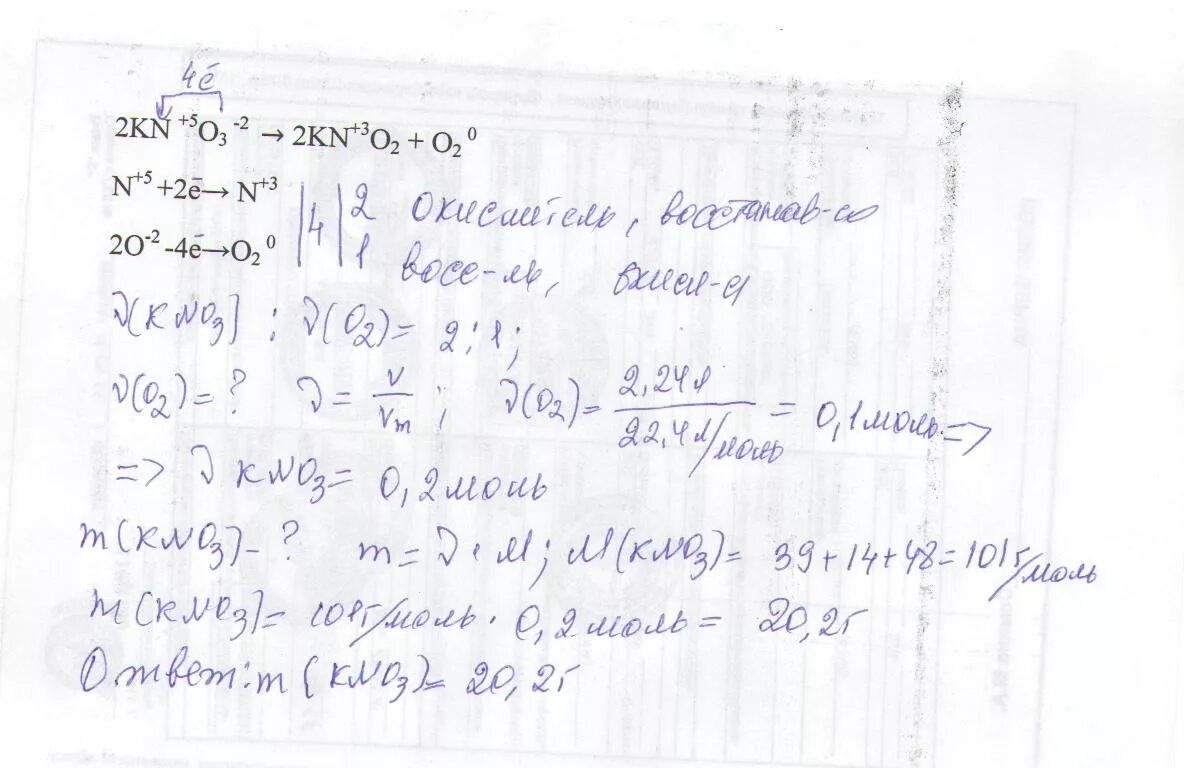 4ē
2KN⁺⁵O₃⁻² → 2KN⁺³O₂ + O₂⁰
N⁺⁵ +2ē→ N⁺³ | 4 | 2 окислитель, восстанав-ся
2O⁻² -4ē→O₂⁰ | 1 восс-ль, окисл-я
ν(KNO₃) : ν(O₂)= 2:1;
ν(O₂)=? ν = V/Vm ; ν(O₂)= 2,24л/22,4л/моль = 0,1моль =>
=> ν KNO₃= 0,2моль
m(KNO₃)-? m= ν·M; M(KNO₃)= 39+14+48=101г/моль
m(KNO₃)= 101г/моль · 0,2моль= 20,2г
Ответ: m(KNO₃)= 20,2г